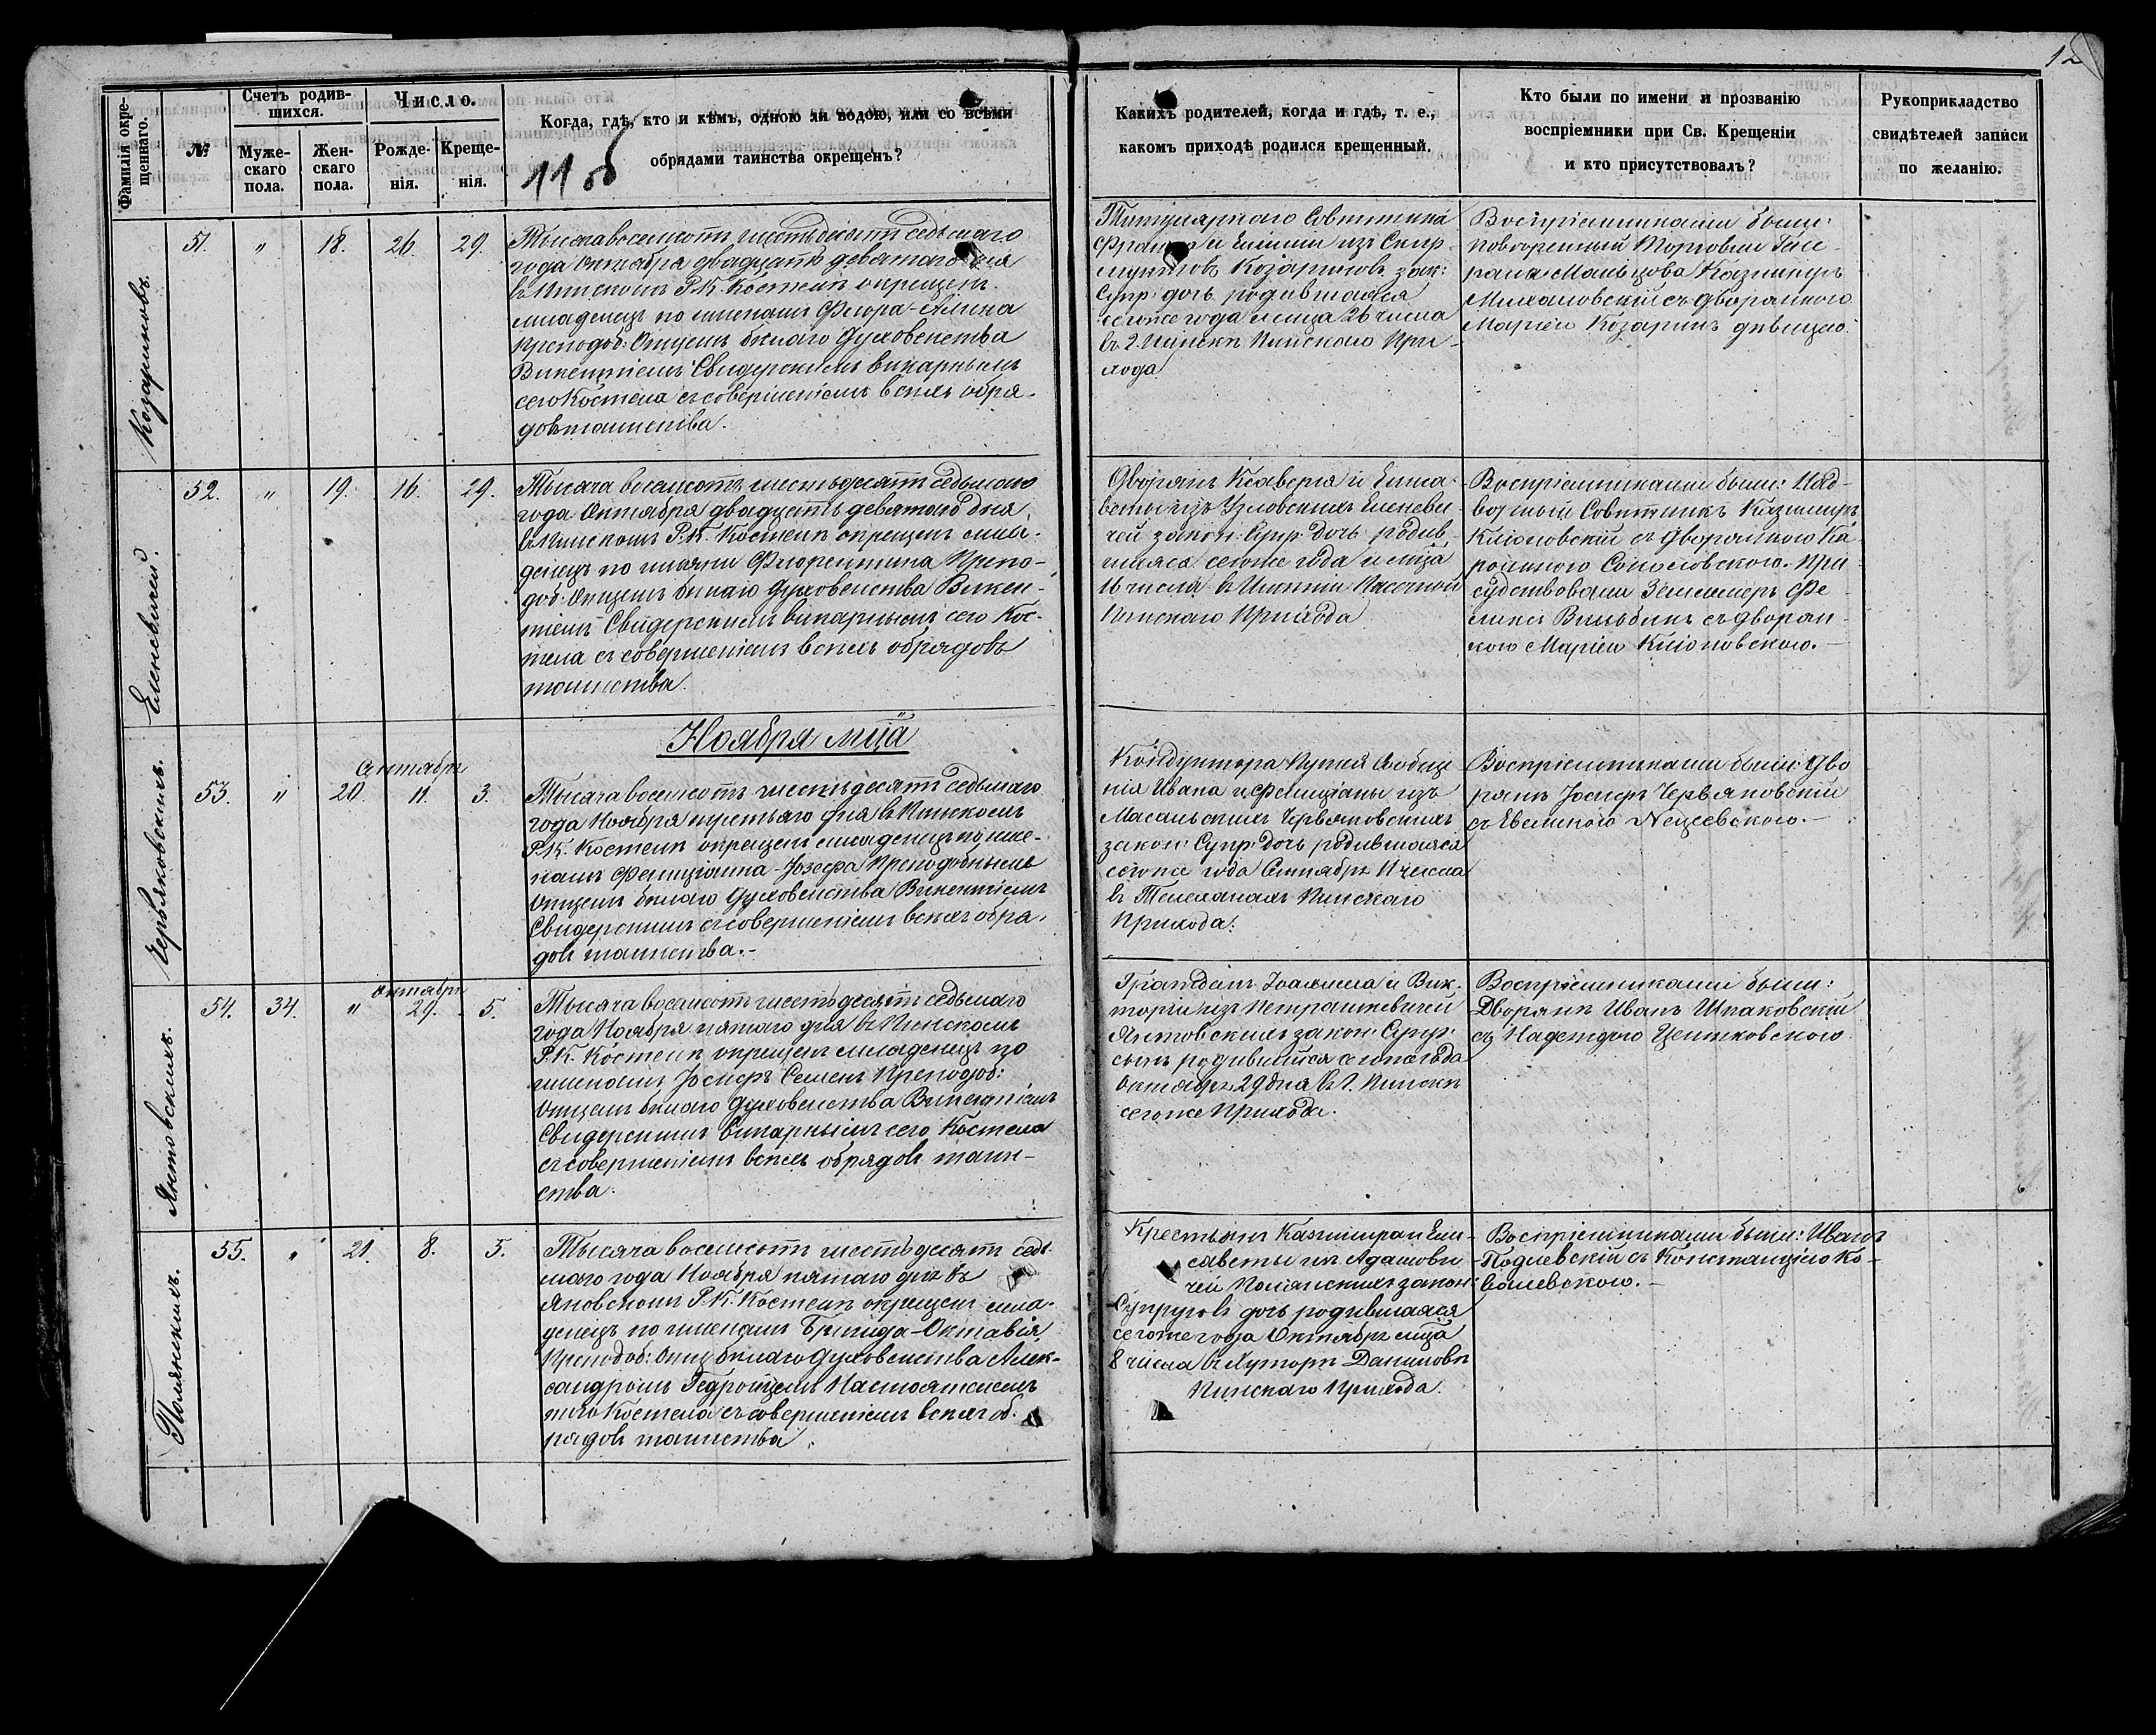 12
Фамилія окре-
щеннаго.
№
Счетъ родив-
шихся.
Муже-
скаго
пола.
Жен-
скаго
пола.
Число.
Рожде-
нія.
Креще-
нія.
Когда, гдѣ, кто и кѣмъ, одною ли водою, или со всѣми
обрядами таинства окрещенъ?
11 об
Какихъ родителей, когда и гдѣ, т. е.,
какомъ приходѣ родился крещенный.
Кто были по имени и прозванію
воспріемники при Св. Крещеніи
и кто присутствовалъ?
Рукоприкладство
свидѣтелей запи́си
по желанію.
Козариновъ.
51. " 18. 26. 29.
Тысяча восемсотъ шестьдесятъ седьмаго
года Октября двадцать девятаго дня
въ Пинскомъ Р.К. Костелѣ окрещенъ
младенецъ по именамъ Флора-Алина
Преподоб: Отцемъ бѣлаго Духовенства
Викентіемъ Свидерскимъ викарнымъ
сего Костела съ совершеніемъ всѣхъ обря-
довъ таинства.
Титулярнаго Совѣтника
и Емиліи изъ Скир-
мунтовъ Козариновъ зак:
Супр: дочь родившаяся
сегоже года мсица 26 числа
въ г. Пинскѣ Пинскаго При-
хода
Воспріемниками были:
повѣренный Торговли Гене-
рала Мальцова Казимиръ
Михаловскій съ Дворянкою
Маріею Козаринъ дѣвицею.
Еленевичей.
52. " 19. 16. 29.
Тысяча восемсотъ шестьдесятъ седьмаго
года Октября двадцать девятаго дня
въ Пинскомъ Р.К. Костелѣ окрещенъ мла-
денецъ по имяни Флорентина Препо-
доб: Отцемъ бѣлаго Духовенства Викен-
тіемъ Свидерскимъ викарнымъ сего Кос-
тела съ совершеніемъ всѣхъ обрядовъ
таинства.
Дворянъ Ксаверія и Елиса-
веты изъ Узловскихъ Еленеви-
чей закон: Супр: дочь родив-
шаяся сегоже года и мсца
16 числа въ Имѣніи Пасечной
Пинскаго Прихода
Воспріемниками были: Над-
ворный Совѣтникъ Казимиръ
Кліоновскій съ Дворянкою Ка-
ролиною Соколовскою. При-
судствовали Землемеръ Фе-
ликсъ Вильбикъ съ дворян-
кою Маріею Кліоновскою.
Ноября мца
Червяковскихъ.
Сентября
53. " 20. 11. 3.
Тысяча восемсотъ шестьдесятъ седьмаго
года Ноября третьяго дня въ Пинскомъ
Р.К. Костелѣ окрещенъ младенецъ по име-
намъ Фелиціанна-Іозефа Преподобнымъ
Отцемъ бѣлаго Духовенства Викентіемъ
Свидерскимъ съ совершеніемъ всѣхъ обря-
довъ таинства.
Кондуктора Путей Сообще-
нія Ивана и Фелиціаны изъ
Масальскихъ Червяковскихъ
закон: Супр: дочь родившаяся
сегоже года Сентября 11 числа
въ Телеханахъ Пинскаго
Прихода.
Воспріемниками были: Дво-
рянѣ Іосифъ Червяковскій
съ Евелиною Нецеевскою.
Янтовскихъ.
Октября
54. 34. " 29. 5.
Тысяча восемсотъ шестьдесятъ седьмаго
года Ноября пятаго дня въ Пинскомъ
Р.К. Костелѣ окрещенъ младенецъ по
именамъ Іосифъ Семенъ Преподоб:
Отцемъ бѣлаго Духовенства Викентіемъ
Свидерскимъ викарнымъ сего Костела
съ совершеніемъ всѣхъ обрядовъ таин-
ства.
Гражданъ Іоахима и Вик-
торіи изъ Петрашкевичей
Янтовскихъ закон: Супр:
сынъ родившійся сегоже года
Октября 29 дня въ г. Пинскѣ
сегоже Прихода.
Воспріемниками были:
Дворянѣ Иванъ Шпаковскій
съ Надеждою Цешковскою.
Полянскихъ.
55. " 21. 8. 5.
Тысяча восемсотъ шестьдесятъ седь-
маго года Ноября пятаго дня въ
Яновскомъ Р.К. Костелѣ окрещенъ мла-
денецъ по именамъ Бригида-Октавія
Преподоб: Отц: бѣлаго Духовенства Алек-
сандромъ Гедройцемъ Настоятелемъ
того Костела съ совершеніемъ всѣхъ об-
рядовъ таинства.
Крестьянъ Казимира и Ели-
саветы изъ Адамови-
чей Полянскихъ закон:
Супруговъ дочь родившаяся
сегоже года Октября мца
8 числа въ Хуторѣ Данилово
Пинскаго Прихода.
Воспріемниками были: Иванъ
Подлевскій съ Констанціею Ко-
валевскою.